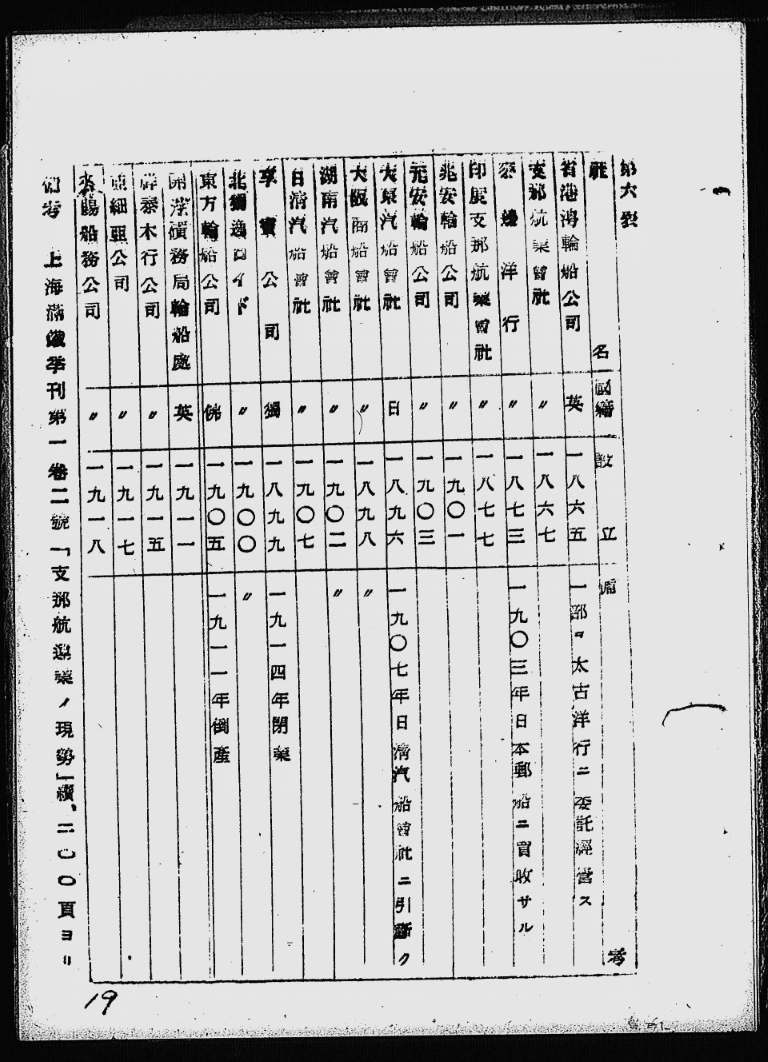 第六表
社名 國籍 設立 備考
省港澳輪船公司 英 一八六五 一部ヲ太古洋行ニ委託經營ス
支那航業會社 〃 一八六七
邊洋行 〃 一八七三 一九〇三年日本郵船ニ買收サル
印度支那航業會社 〃 一八七七
兆安輪船公司 〃 一九〇一
元安輪船公司 〃 一九〇三
大東汽船會社 日 一八九六 一九〇七年日清汽船會社ニ引繼グ
大阪商船會社 〃 一八九八 〃
湖南汽船會社 〃 一九〇二 〃
日清汽船會社 〃 一九〇七
享寶公司 獨 一八九九 一九一四年閉業
北獨逸ロイド 〃 一九〇〇 〃
東方輪船公司 佛 一九〇五 一九一一年倒產
開灤礦務局輪船處 英 一九一一
祥泰木行公司 〃 一九一五
亞細亞公司 〃 一九一七
船務公司 〃 一九一八
備考 上海滿鐵季刊第一卷二號「支那航運業ノ現勢」續、二〇〇頁ヨリ
19